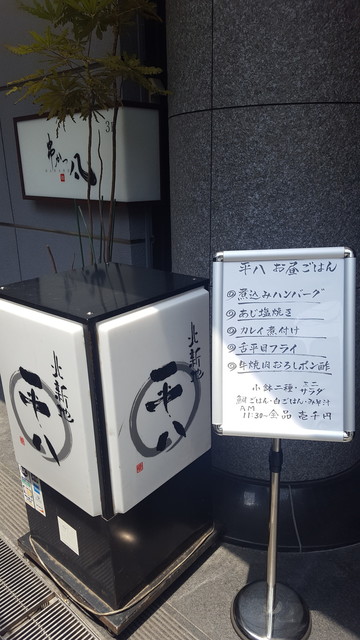 串かつ 凡
3
北新地
平八
北新地
平八
平八 お昼ごはん
◎煮込みハンバーグ
◎あじ塩焼き
◎カレイ煮付け
◎舌平目フライ
◎牛焼肉おろしポン酢
小鉢二種・ミニサラダ
鯛ごはん・白ごはん・みそ汁
AM
11:30〜全品 壱千円